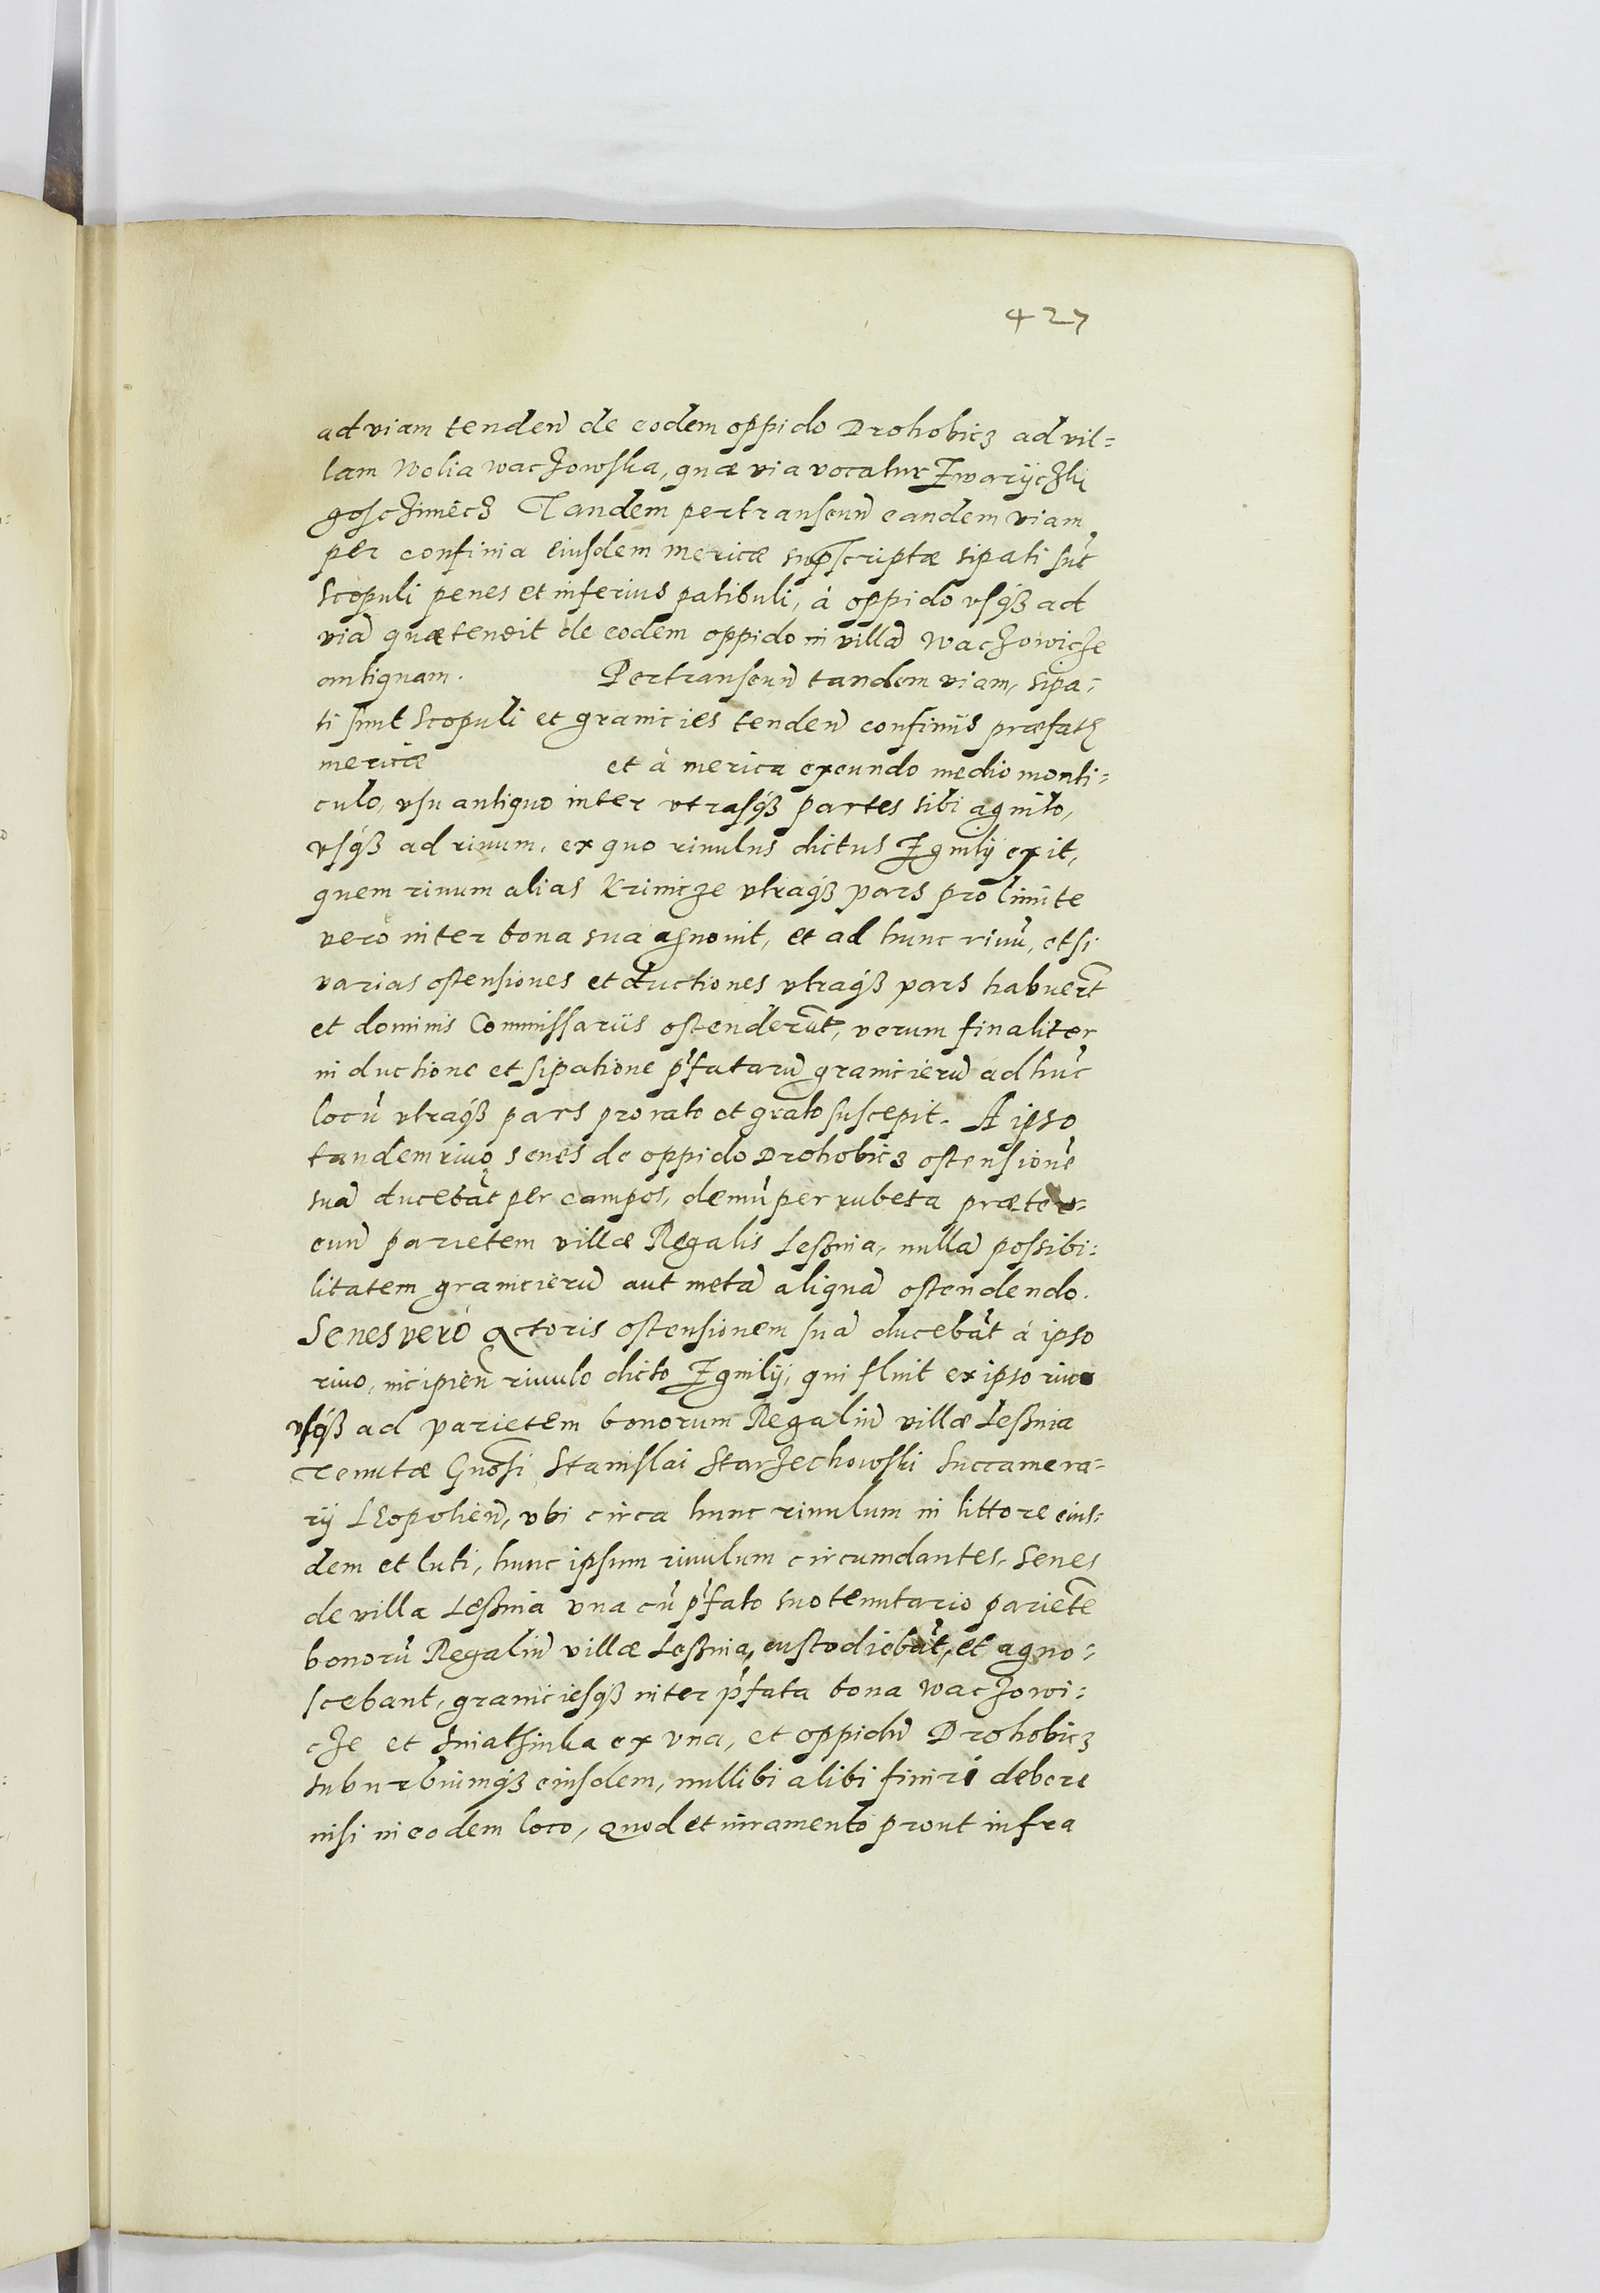 427
ad viam tendeñ de eodem oppido Drohobicz ad vil=
lam Wolia Waczowska, quæ via vocatur Zwaryczki
goscziniecz Tandem pertranseuñ eandem viam
per confinia eiusdem mericæ suprascriptæ sipati sūt
Scopuli penes et inferius patibuli, à oppido vsq₃ ad
viā quæ tendit de eodem oppido in villā Waczowicze
antiquam. Pertranseuñ tandem viam, sipa=
ti sunt Scopuli et granicies tendeñ confiniis præfatę
mericæ et à merica exeundo medio monti=
culo, vsu antiquo inter vtrasq₃ partes sibi agnito,
vsq₃ ad riuum, ex quo riuulus dictus Zgnily exit,
quem riuum alias Krinicze vtraq₃ pars pro limite
vero inter bona sua agnouit, et ad hunc riuū, etsi
varias ostensiones et ductiones vtraq₃ pars habuerūt
et dominis Commissariis ostenderūt, verum finaliter
in ductione et sipatione p̄fatarū granicierū ad hūc
locū vtraq₃ pars pro rato et grato suscepit. A ipso
tandem riuo senes de oppido Drohobicz ostensionē
suā ducebāt per campos, demū per rubeta præter=
euñ parietem villæ Regalis Leßnia, nullā possibi=
litatem granicierū aut metā aliquā ostendendo.
Senes vero Actoris ostensionem suā ducebāt à ipso
riuo, incipieñ riuulo dicto Zgnily, qui fluit ex ipso riuo
vsq₃ ad parietem bonorum Regaliū villæ Leßnia
Tenutæ Gnosi Stanislai Starzechowski Succamera=
rij Leopolień, vbi circa hunc riuulum in littore eius=
dem et luti, hunc ipsum riuulum circumdantes, Senes
de villa Leßnia vna cū p̄fato suo tenutario parietē
bonorū Regaliū villæ Leßnia, custodiebāt, et agno=
scebant, graniciesq₃ inter p̄fata bona Waczowi=
cze et Sniatinka ex vna, et oppidū Drohobicz
suburbiumq₃ eiusdem, nullibi alibi finiri debere
nisi in eodem loco, Quod et iuramento prout infra